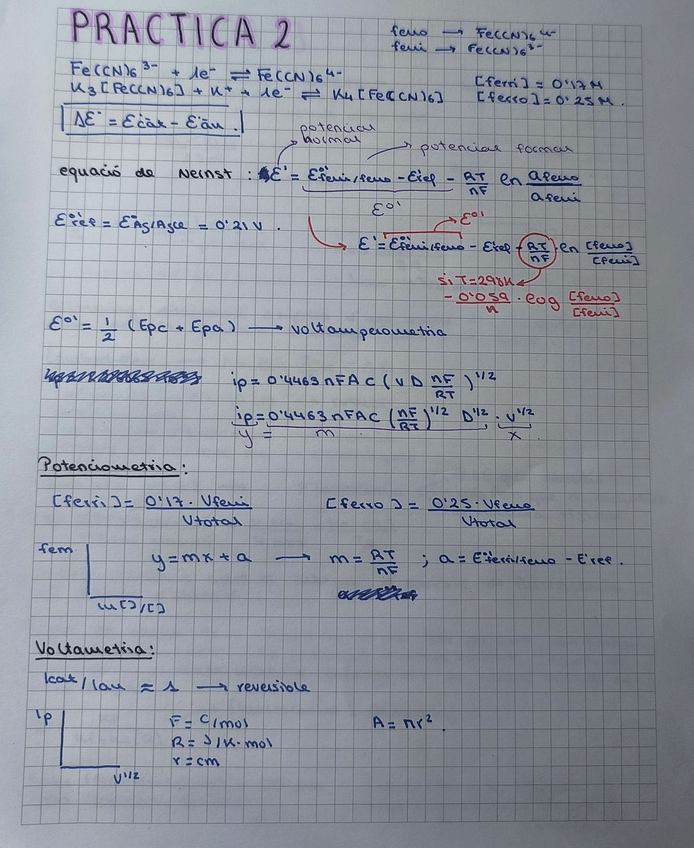 PRACTICA 2
ferro → Fe(CN)6 4-
ferri → Fe(CN)6 3-
Fe(CN)6 3- + 1e- ⇌ Fe(CN)6 4-
K3[Fe(CN)6] + K+ + 1e- ⇌ K4[Fe(CN)6]
[ferri] = 0'17 M
[ferro] = 0'25 M.
ΔE° = E°cat - E°an.
potencial
normal
potencial formal
equació de Nernst : E' = E°ferri/ferro - Eref - RT/nF ln aferro/aferri
E°'
E°ref = E°Ag/AgCl = 0'21 V.
E°'
E' = E°'ferri/ferro - Eref - RT/nF ln [ferro]/[ferri]
si T=298K
- 0'059/n · log [ferro]/[ferri]
E°' = 1/2 (Epc + Epa) → voltamperometria
ip = 0'4463 nFAC (v D nF/RT)^1/2
ip = 0'4463 nFAC (nF/RT)^1/2 D^1/2 · v^1/2
y = m x
Potenciometria:
[ferri] = 0'17 · Vferri / Vtotal
[ferro] = 0'25 · Vferro / Vtotal
fem
y = mx + a → m = RT/nF ; a = E°'ferri/ferro - Eref.
ln []/[]
Voltametria:
Icat/Ian ≈ 1 → reversible
ip
F = C/mol
A = πr².
R = J/K·mol
r = cm
v^1/2